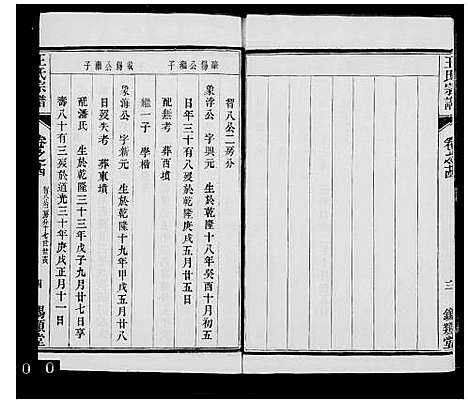 王氏宗譜
卷之
三
錫類堂
華錫公繼子
智八公二房分
象浮公 字興元 生於乾隆十八年癸酉十月初五
日年三十有八歿於乾隆庚戌五月廿五日
配無考 葬西墳
繼一子 學楷
載錫公繼子
象海公 字 元 生於乾隆十九年甲戌五月廿八
日歿失考 葬東墳
配潘氏 生於乾隆三十三年戊子九月廿七日享
壽八十有三歿於道光三十年庚戌正月十一日
王氏宗譜
卷之
四
錫類堂
0 0